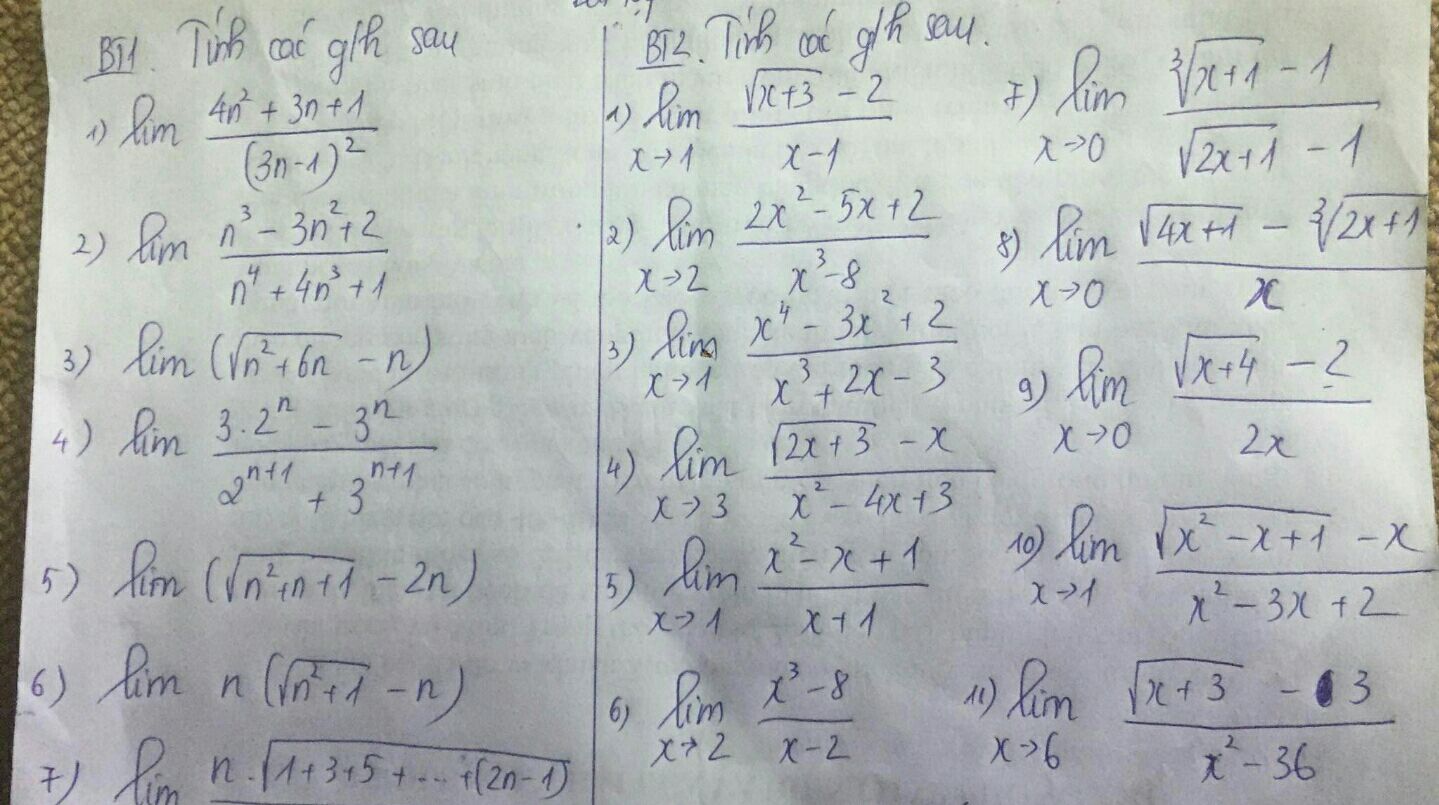 BT1. Tính các g/h sau
1) lim (4n² + 3n + 1)/(3n-1)²
2) lim (n³ - 3n² + 2)/(n⁴ + 4n³ + 1)
3) lim (√(n² + 6n) - n)
4) lim (3.2ⁿ - 3ⁿ)/(2ⁿ⁺¹ + 3ⁿ⁺¹)
5) lim (√(n²+n+1) - 2n)
6) lim n (√(n²+1) - n)
7) lim n.√(1+3+5+...+(2n-1))
BT2. Tính các g/h sau.
1) lim x→1 (√(x+3) - 2)/(x-1)
2) lim x→2 (2x² - 5x + 2)/(x³-8)
3) lim x→1 (x⁴ - 3x² + 2)/(x³ + 2x - 3)
4) lim x→3 (√(2x+3) - x)/(x² - 4x + 3)
5) lim x→1 (x² - x + 1)/(x+1)
6) lim x→2 (x³-8)/(x-2)
7) lim x→0 (∛(x+1) - 1)/(√(2x+1) - 1)
8) lim x→0 (√(4x+1) - ∛(2x+1))/x
9) lim x→0 (√(x+4) - 2)/2x
10) lim x→1 (√(x² - x + 1) - x)/(x² - 3x + 2)
11) lim x→6 (√(x+3) - 3)/(x² - 36)